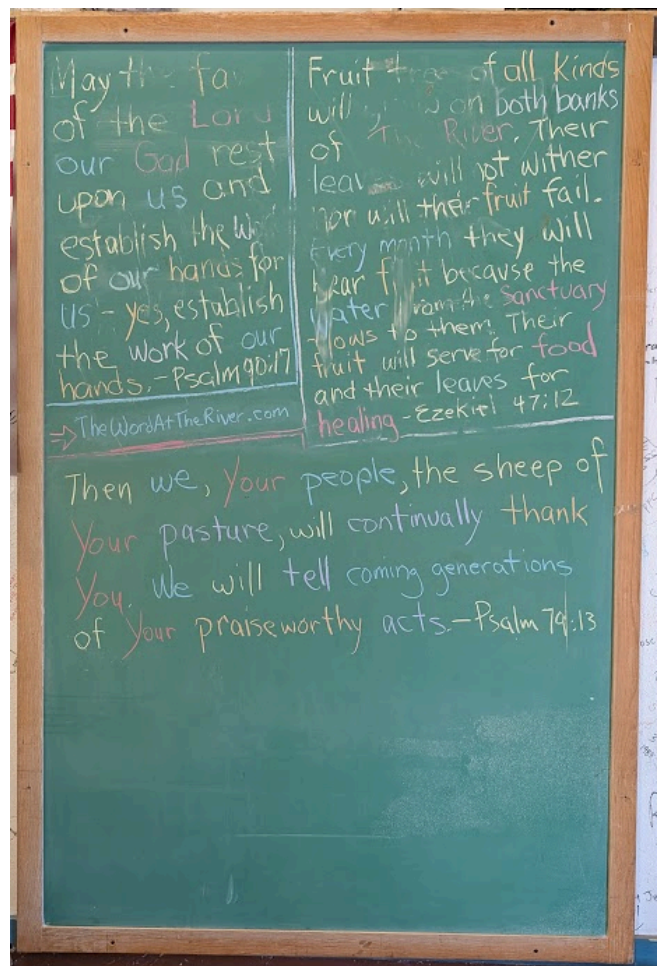 May the fa
of the Lord
our God rest
upon us and
establish the
of our hands for
us - yes, establish
the work of our
hands. - Psalm 90:17
→ TheWordAtTheRiver.com
Fruit trees of all kinds
will on both banks
of The River. Their
leaves will not wither
nor will their fruit fail.
Every month they will
bear fruit because the
water from the Sanctuary
flows to them. Their
fruit will serve for food
and their leaves for
healing - Ezekiel 47:12
Then we, Your people, the sheep of
Your pasture, will continually thank
You. We will tell coming generations
of Your praiseworthy acts. - Psalm 79:13